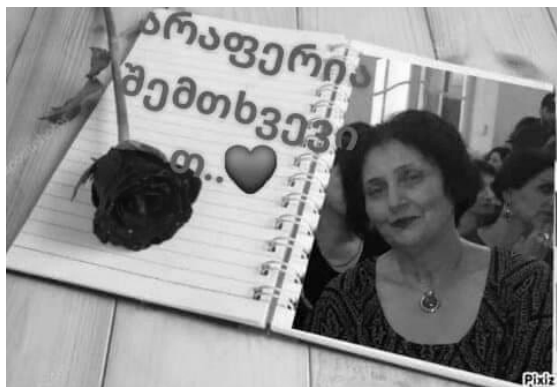 არაფერია
შემთხვევი
თ..🖤
Pixiz